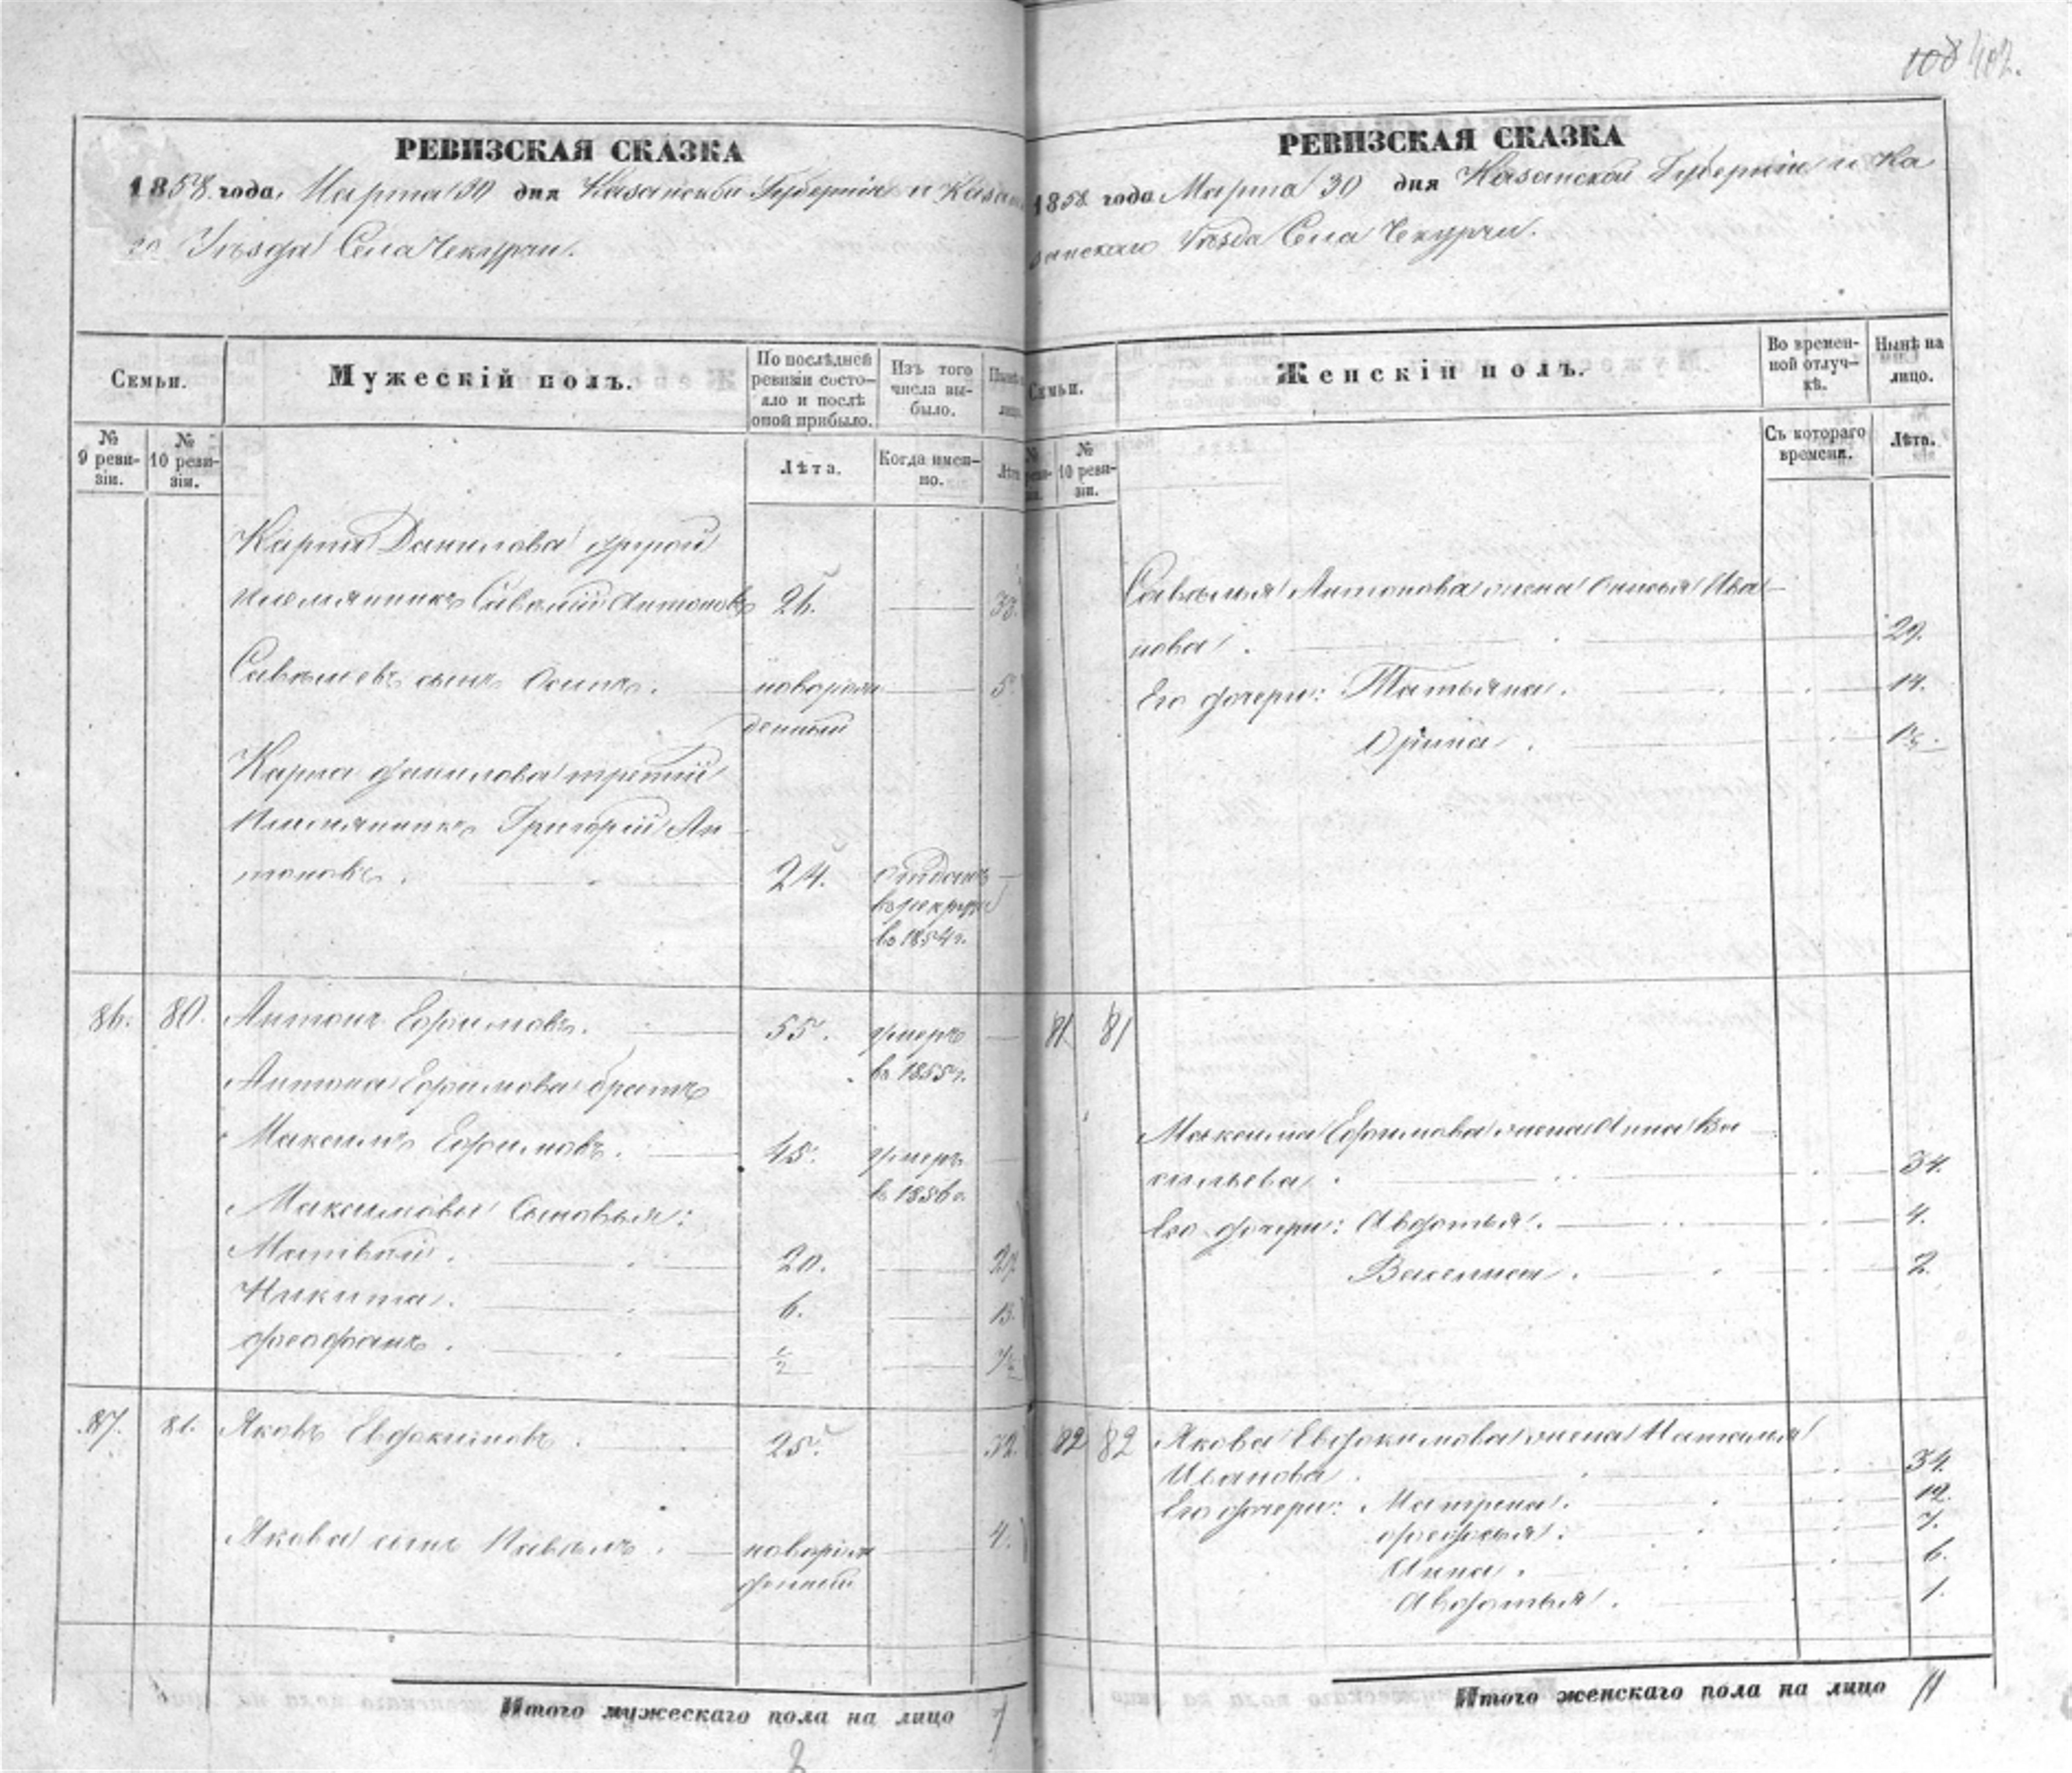 108 402.
РЕВИЗСКАЯ СКАЗКА
1858 года, Марта 30 дня Казанской Губерніи и Казан
го Уѣзда Села Чекурчи.
Семьи.
Мужескій полъ.
По послѣдней ревизіи состо-яло и послѣ оной прибыло.
Изъ того числа вы-было.
№ 9 реви-зіи.
№ 10 реви-зіи.
Лѣта.
Когда имен-но.
Лѣта
Карпа Данилова другой
племянникъ Савелій Антоновъ 26. 33.
Савельевъ сынъ Осипъ. новорож 5.
денный
Карпа Данилова третій
племянникъ Григорій Ан-
тоновъ. 24. отданъ
въ рекруты
въ 1854 г.
86. 80. Антонъ Ефимовъ. 55. умеръ
въ 1855 г.
Антона Ефимова братъ
Максимъ Ефимовъ. 45. умеръ
въ 1856 г.
Максимовы Сыновья:
Матвей. 20. 27
Никита. 6. 13.
Феофанъ. 1/2 7 1/2
87. 81. Яковъ Евдокимовъ. 25. 32.
Якова сынъ Павелъ. новорож 4.
денный
Итого мужескаго пола на лицо 7
РЕВИЗСКАЯ СКАЗКА
1858 года Марта 30 дня Казанской Губерніи и Ка
занскаго Уѣзда Села Чекурчи.
Семьи.
Женскій полъ.
Во времен-ной отлуч-кѣ.
Нынѣ на лицо.
№ 10 реви-зіи.
Съ котораго времени.
Лѣта.
Савелья Антонова жена Ива-
нова. 29.
Его дочери: Татьяна. 14.
Орина. 1 1/2.
81 81
Максима Ефимова жена Анна Ва
сильева. 34.
Его дочери: Авдотья. 4.
Васелиса. 2.
82 82 Якова Евдокимова жена Наталья
Иванова. 34.
Его дочери: Матрена. 12.
Федосья. 7.
Анна. 6.
Авдотья. 1.
Итого женскаго пола на лицо 11